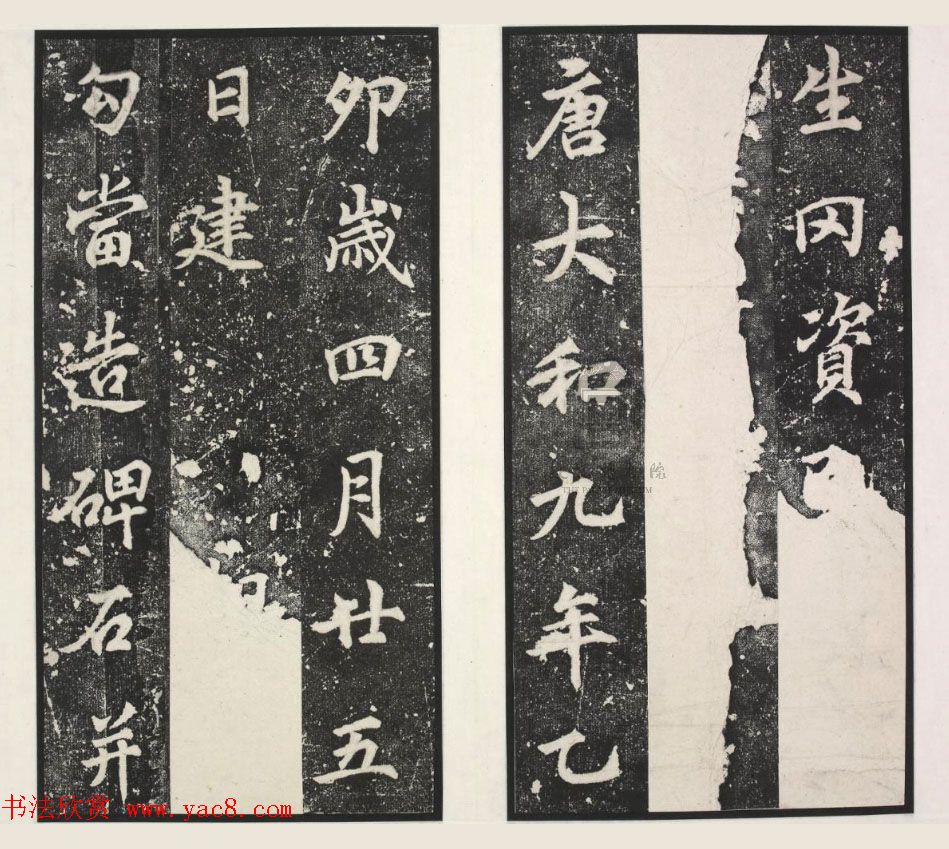 生罔資
唐大和九年乙
卯歲四月廿五
日建
勾當造碑石并
院
THE PALACE MUSEUM
书法欣赏 www.yac8.com